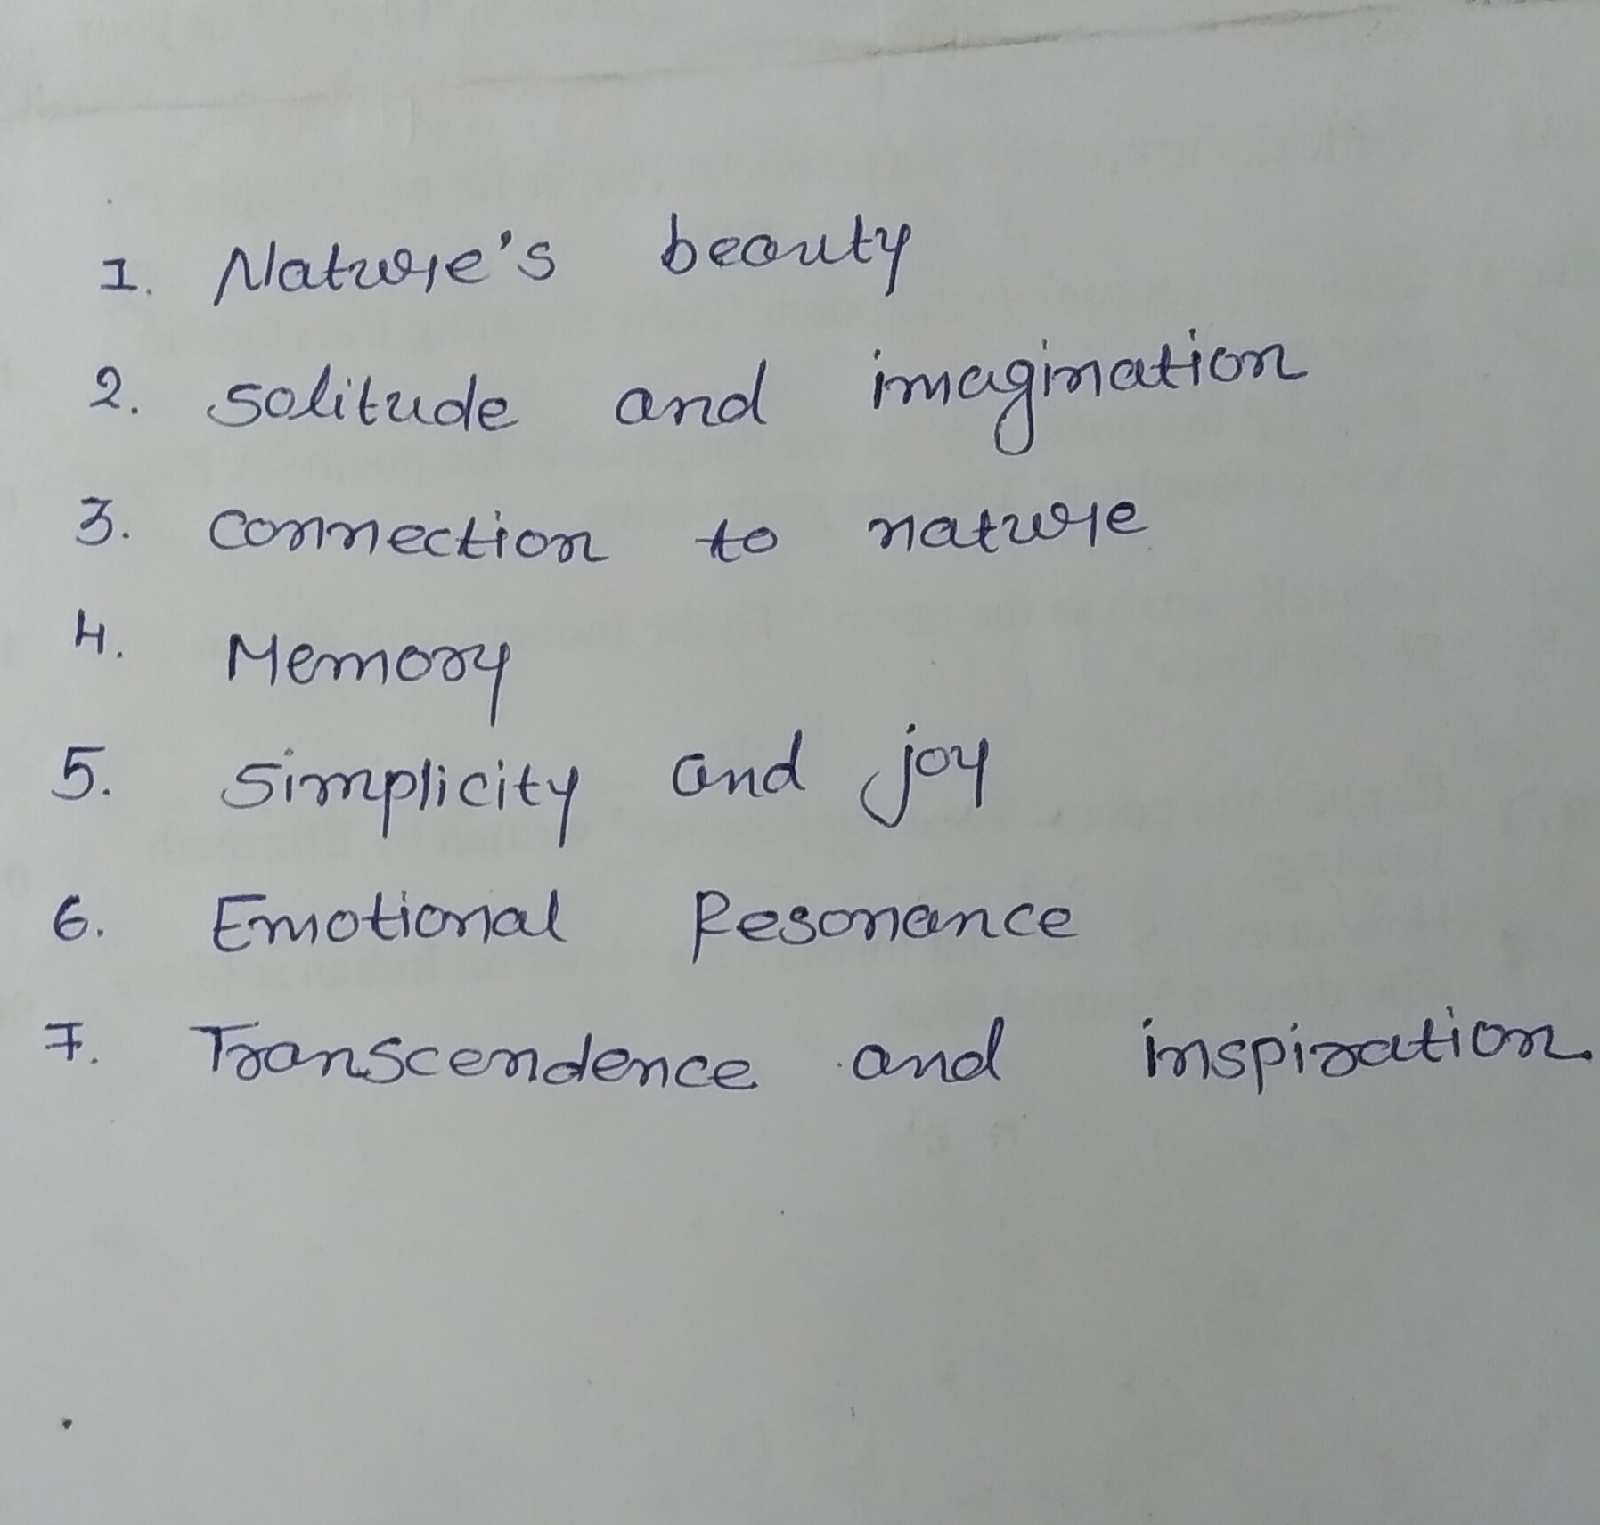 1. Nature's beauty
2. Solitude and imagination
3. connection to nature
4. Memory
5. Simplicity and joy
6. Emotional Resonance
7. Transcendence and inspiration.